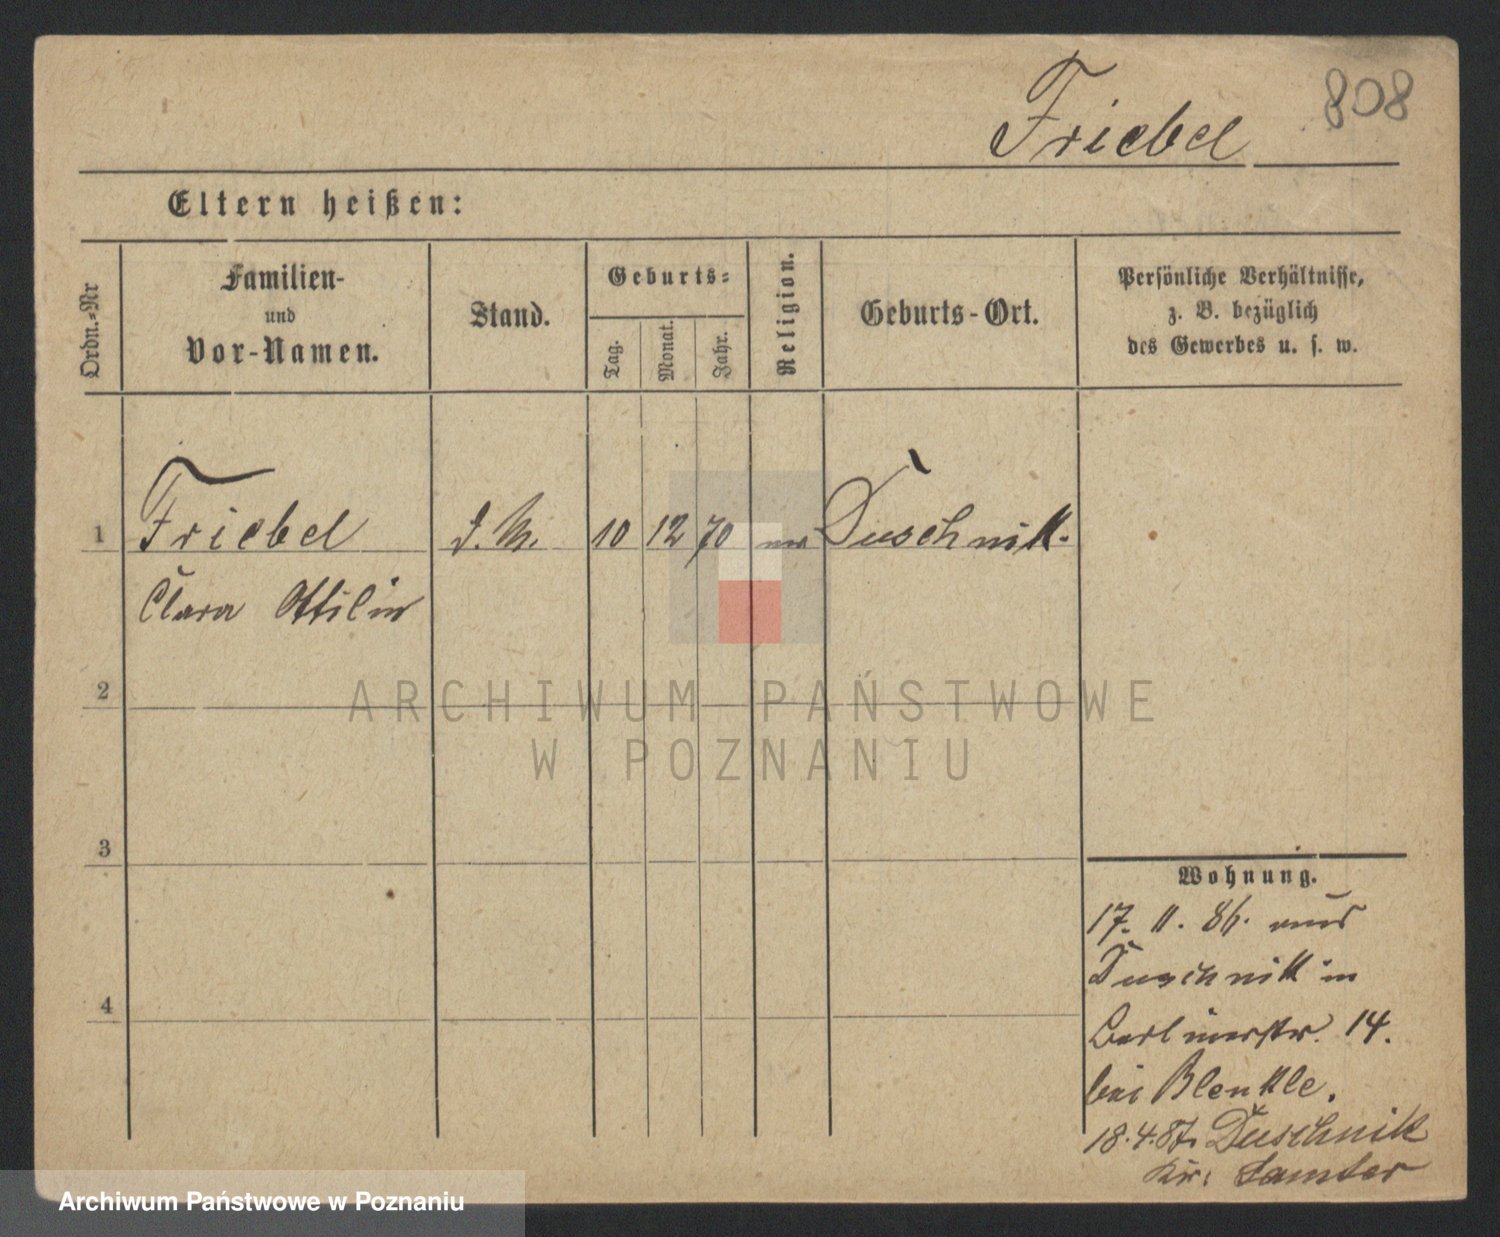 808
Friebel
Eltern heißen:
Ordn.-Nr
Familien-
und
Vor-Namen.
Stand.
Geburts-
Tag.
Monat.
Jahr.
Religion.
Geburts-Ort.
Persönliche Verhältnisse,
z. B. bezüglich
des Gewerbes u. s. w.
1 Friebel 10 12 70 Duschnik.
Clara Ottilie
2
3
4
ARCHIWUM PAŃSTWOWE
W POZNANIU
Wohnung.
17. 11. 86. aus
Duschnik in
Berlinerstr. 14.
bei Blenkle.
18.4.87. Duschnik
Kr. Samter
Archiwum Państwowe w Poznaniu